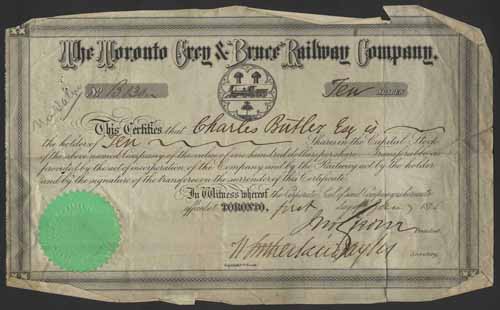 The Toronto Grey & Bruce Railway Company.
No
Ten SHARES
This Certifies that Charles Butler Esq is
the holder of Ten Shares in the Capital Stock
of the above named Company of the value of one hundred dollars per share transferable as
provided by the act of incorporation of the Company and by the Railway act by the holder
and by the signature of the transferee on the surrender of this Certificate.
In Witness whereof the Corporate Seal of said Company is hereunto
affixed at TORONTO, first 187
President
W Sutherland Taylor Secretary